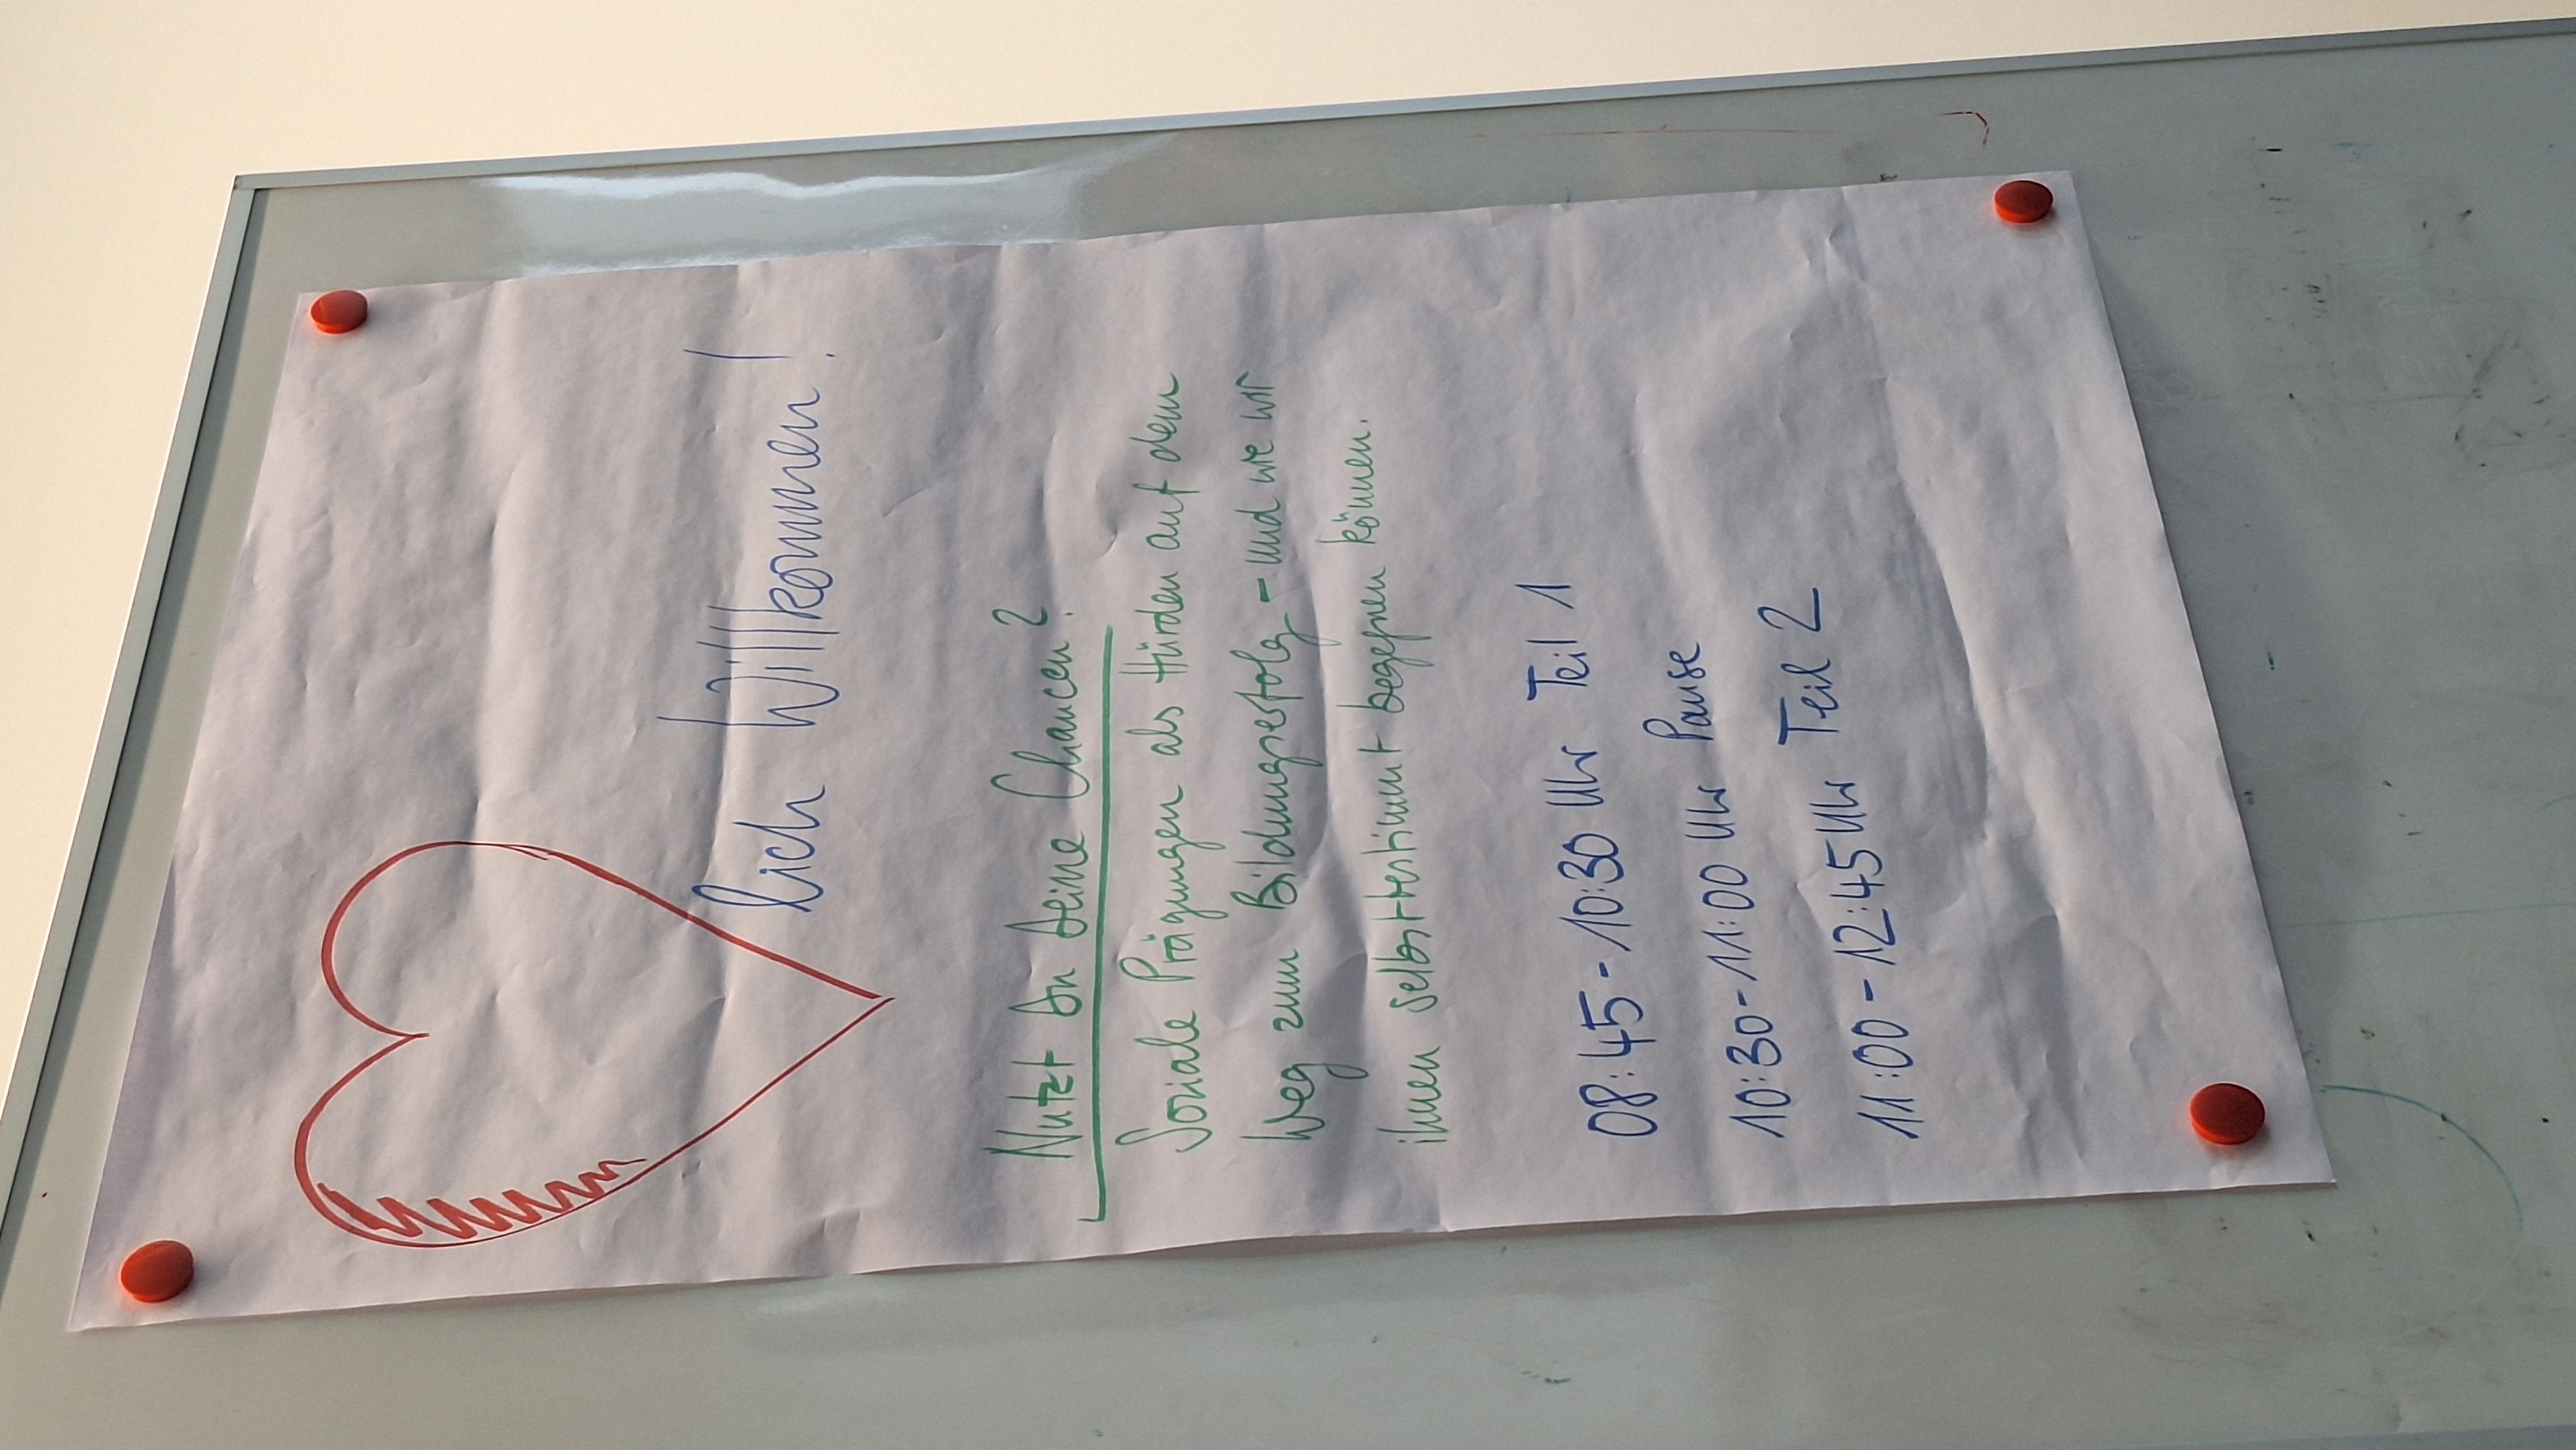 lich Willkommen!
Nutzt Du Deine Chancen?
Soziale Prägungen als Hürden auf dem
Weg zum Bildungserfolg - und wie wir
ihnen selbstbestimmt begegnen können.
08:45 - 10:30 Uhr Teil 1
10:30 - 11:00 Uhr Pause
11:00 - 12:45 Uhr Teil 2